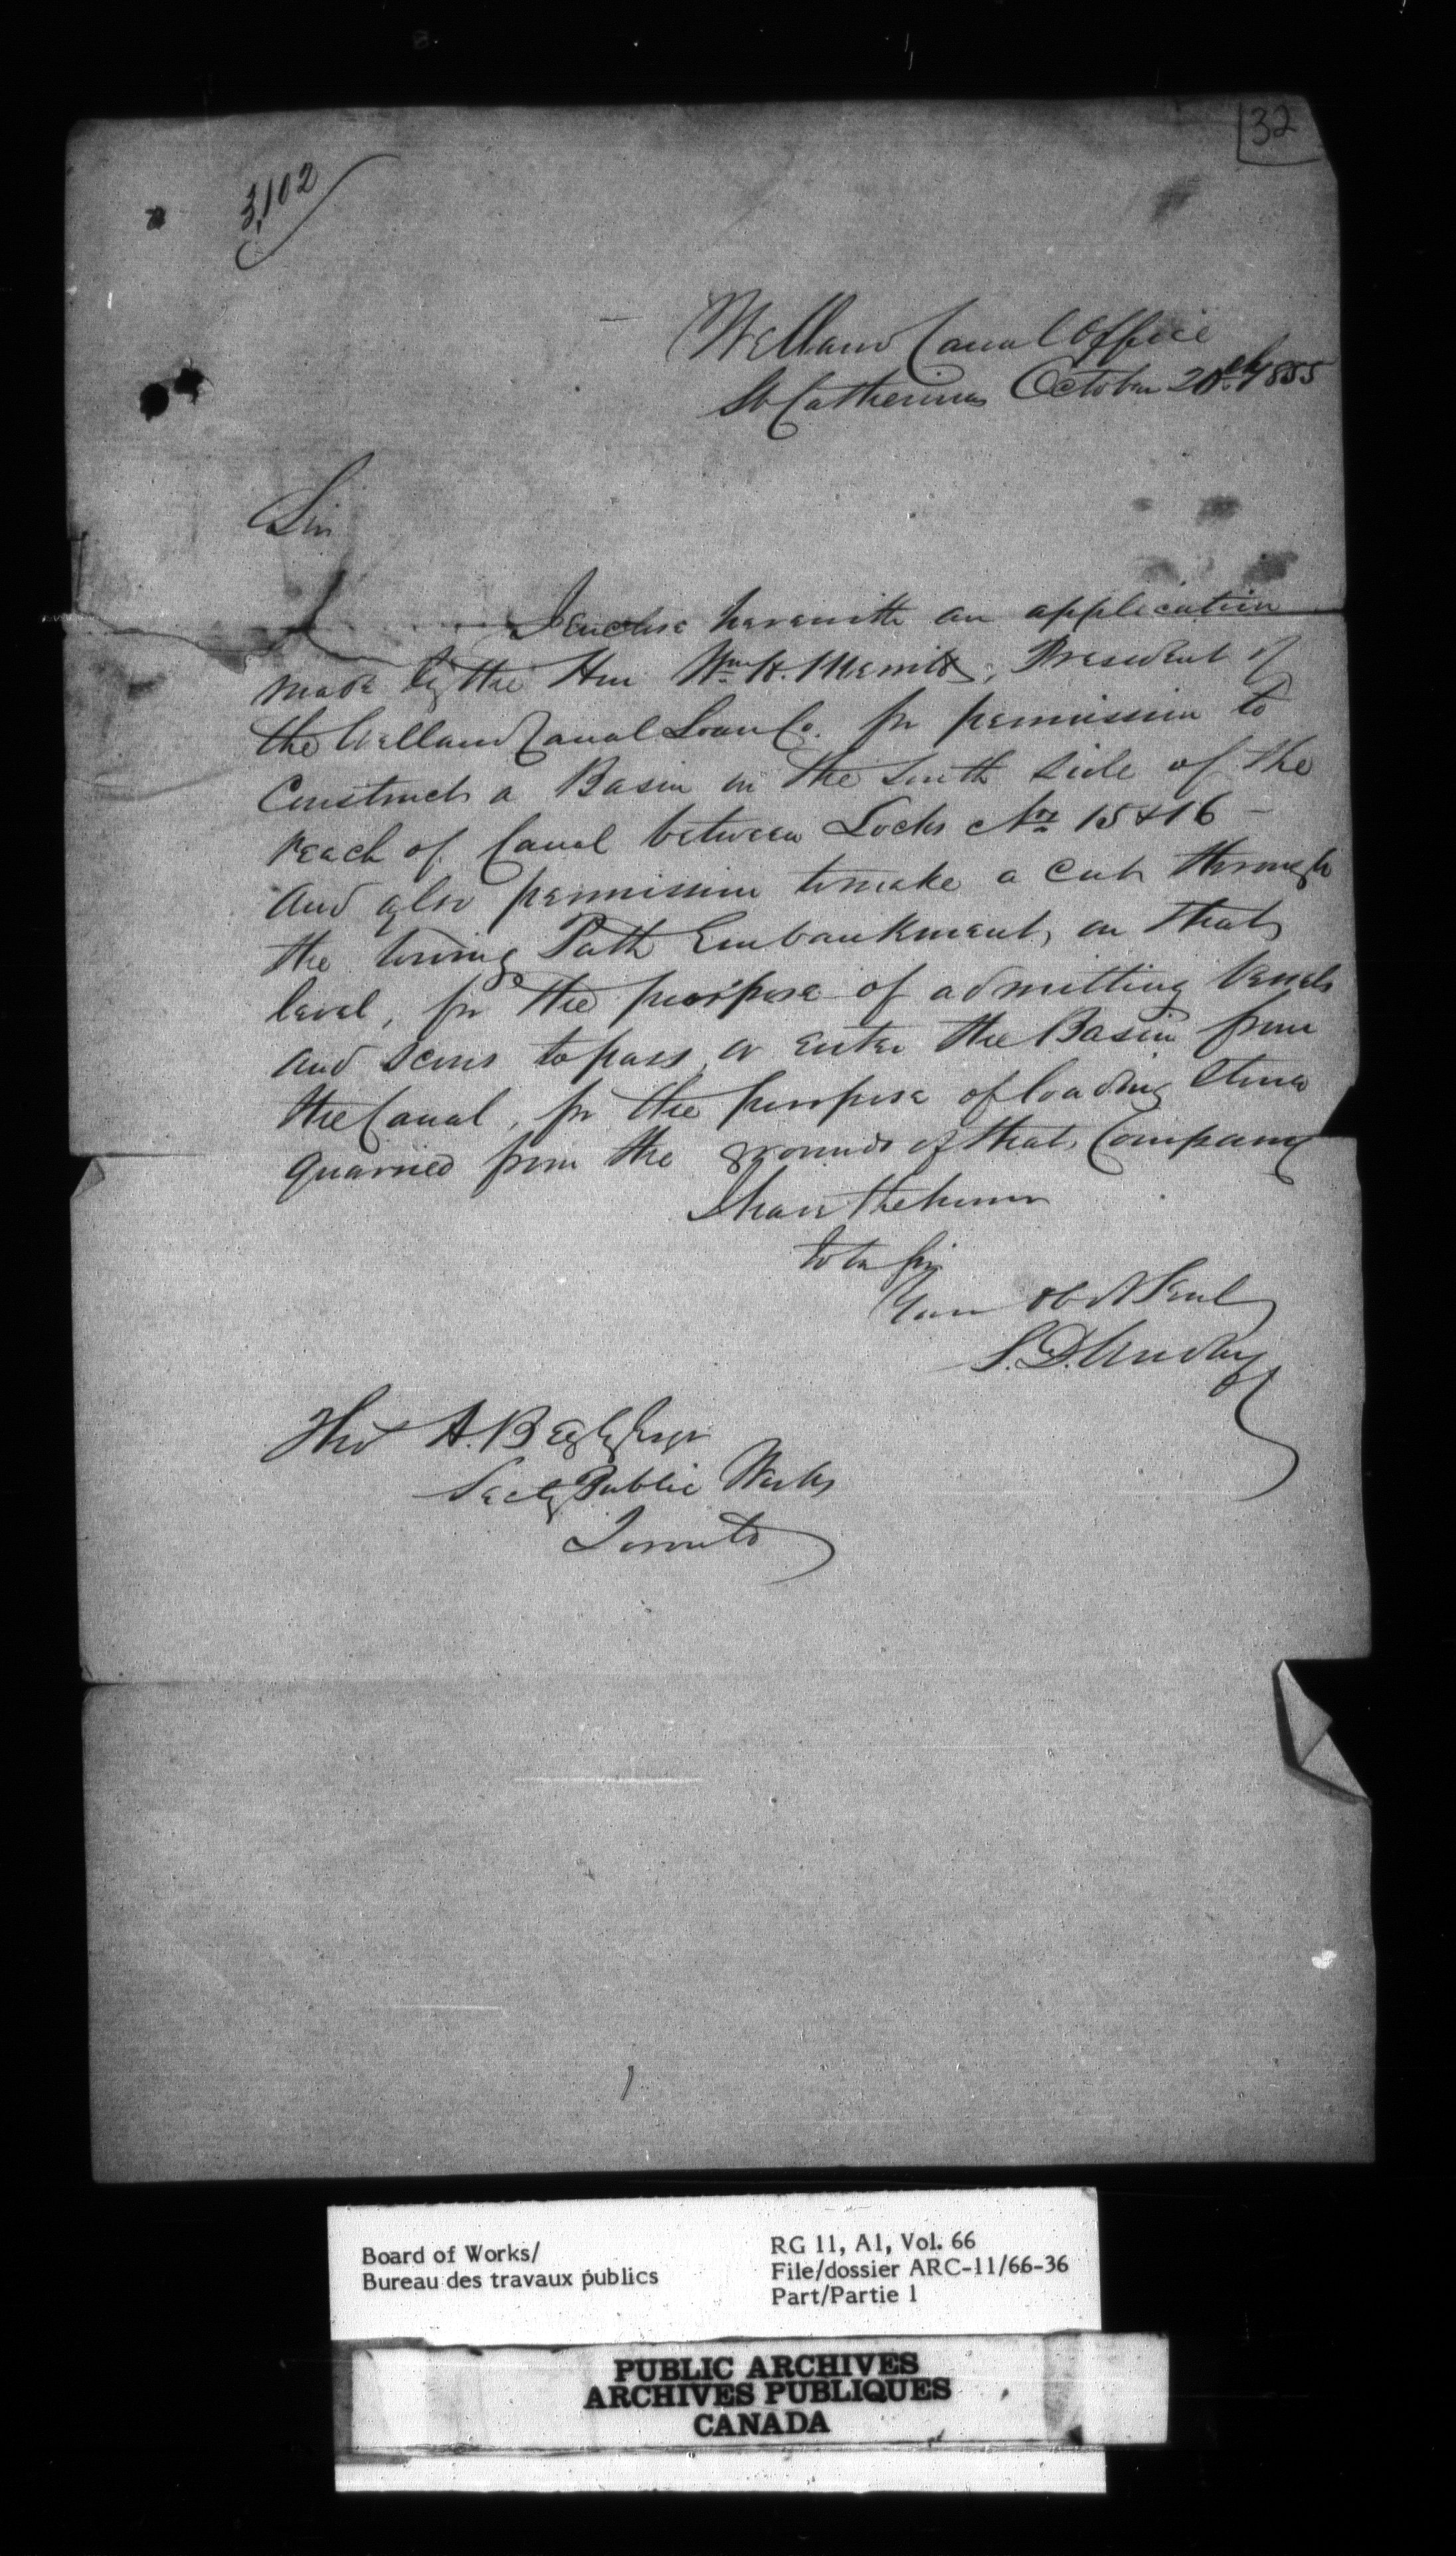 32
3,102
Welland Canal Office
St Catherines October 20th 1855
Sir
I enclose herewith an application
made by the Hon Wm H. Merritt, President of
the Welland Canal Loan Co. for permission to
Construct a Basin on the South side of the
reach of Canal between Locks Nos 15 & 16 –
and also permission to make a cut through
the towing Path Embankment, on that
level, for the purpose of admitting Vessels
and scows to pass or enter the Basin from
the Canal, for the purpose of loading Stone
quarried from the grounds of that Company
I have the honor
to be Sir
Your Obdt Servt
S. D. Woodruff
Thos A. Begly Esqr
Secty Public Works
Toronto
Board of Works/
Bureau des travaux publics
RG 11, A1, Vol. 66
File/dossier ARC-11/66-36
Part/Partie 1
PUBLIC ARCHIVES
ARCHIVES PUBLIQUES
CANADA